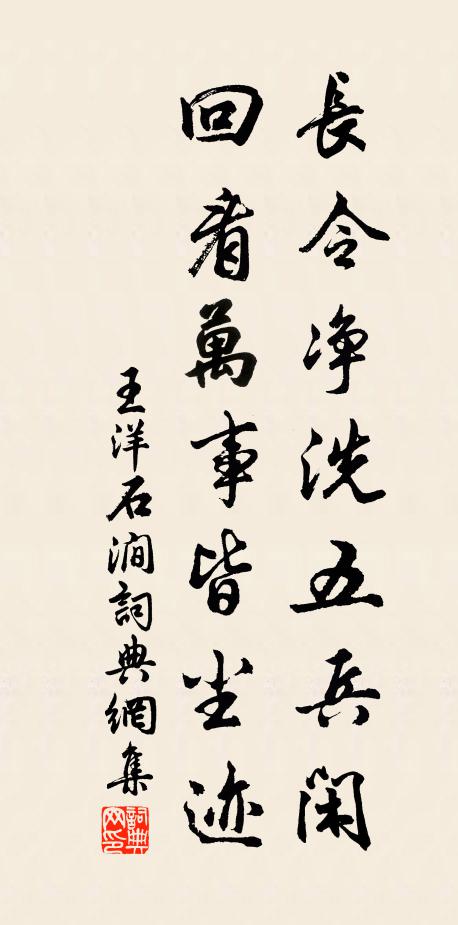 長令净洗五兵閑
回看萬事皆尘迹
王洋石澗詞典網集
詞典
网印